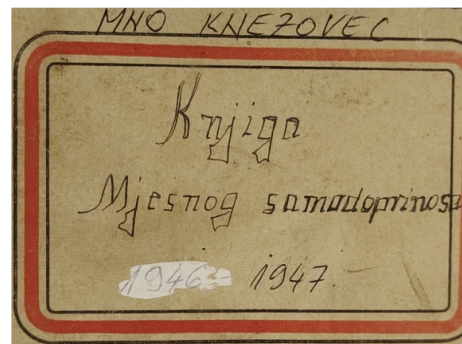 MNO KNEŽOVEC
Knjiga
Mjesnog samodoprinosa
1946 - 1947.